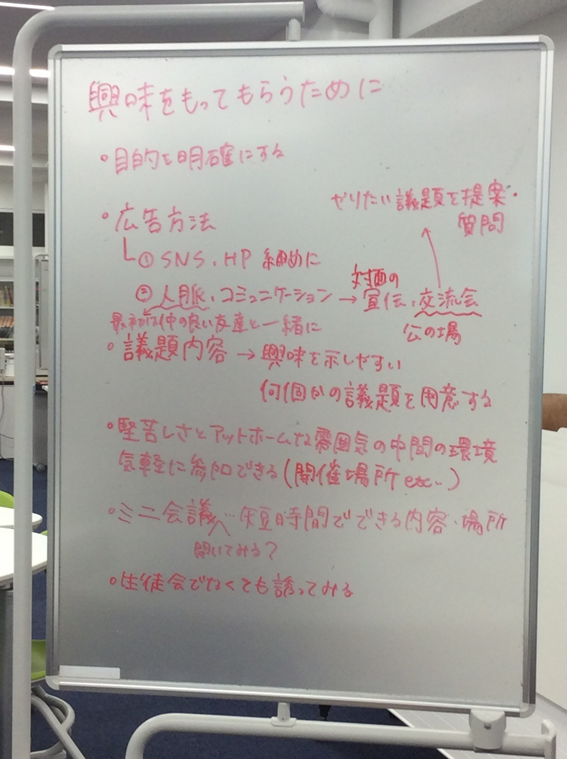 興味をもってもらうために
・目的を明確にする
・広告方法
①SNS、HP 細めに
②人脈、コミュニケーション → 対面の宣伝、交流会
公の場
やりたい議題を提案・
質問
最初は仲の良い友達と一緒に
・議題内容 → 興味を示しやすい
何個かの議題を用意する
・堅苦しさとアットホームな雰囲気の中間の環境
気軽に参加できる(開催場所etc…)
・ミニ会議…短時間でできる内容・場所
開いてみる?
・生徒会でなくても誘ってみる